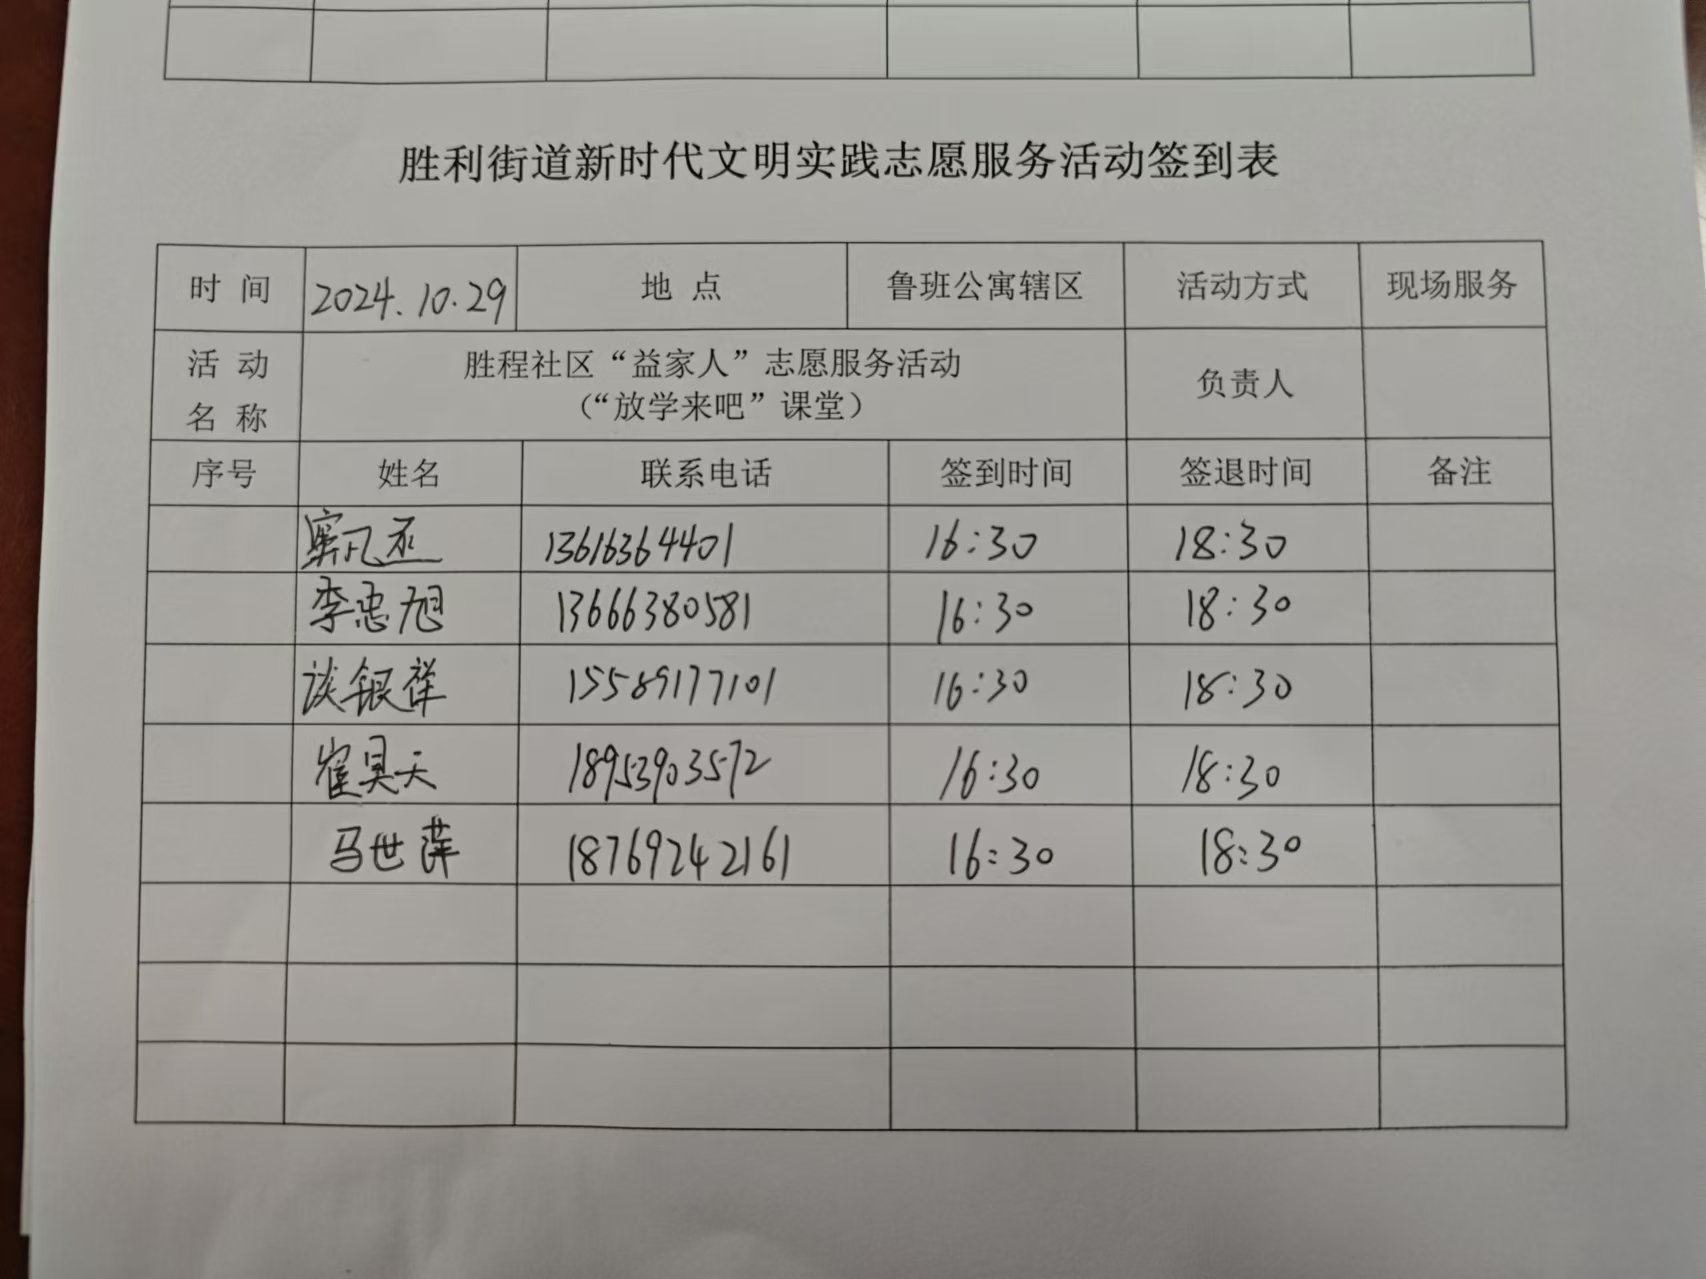 胜利街道新时代文明实践志愿服务活动签到表
时 间 2024.10.29 地 点 鲁班公寓辖区 活动方式 现场服务
活 动 名 称 胜程社区“益家人”志愿服务活动 负责人
（“放学来吧”课堂）
序号 姓名 联系电话 签到时间 签退时间 备注
13616364401 16:30 18:30
李忠旭 13666380581 16:30 18:30
谈银祥 15589177101 16:30 18:30
崔昊天 18953903572 16:30 18:30
马世萍 18769242161 16:30 18:30